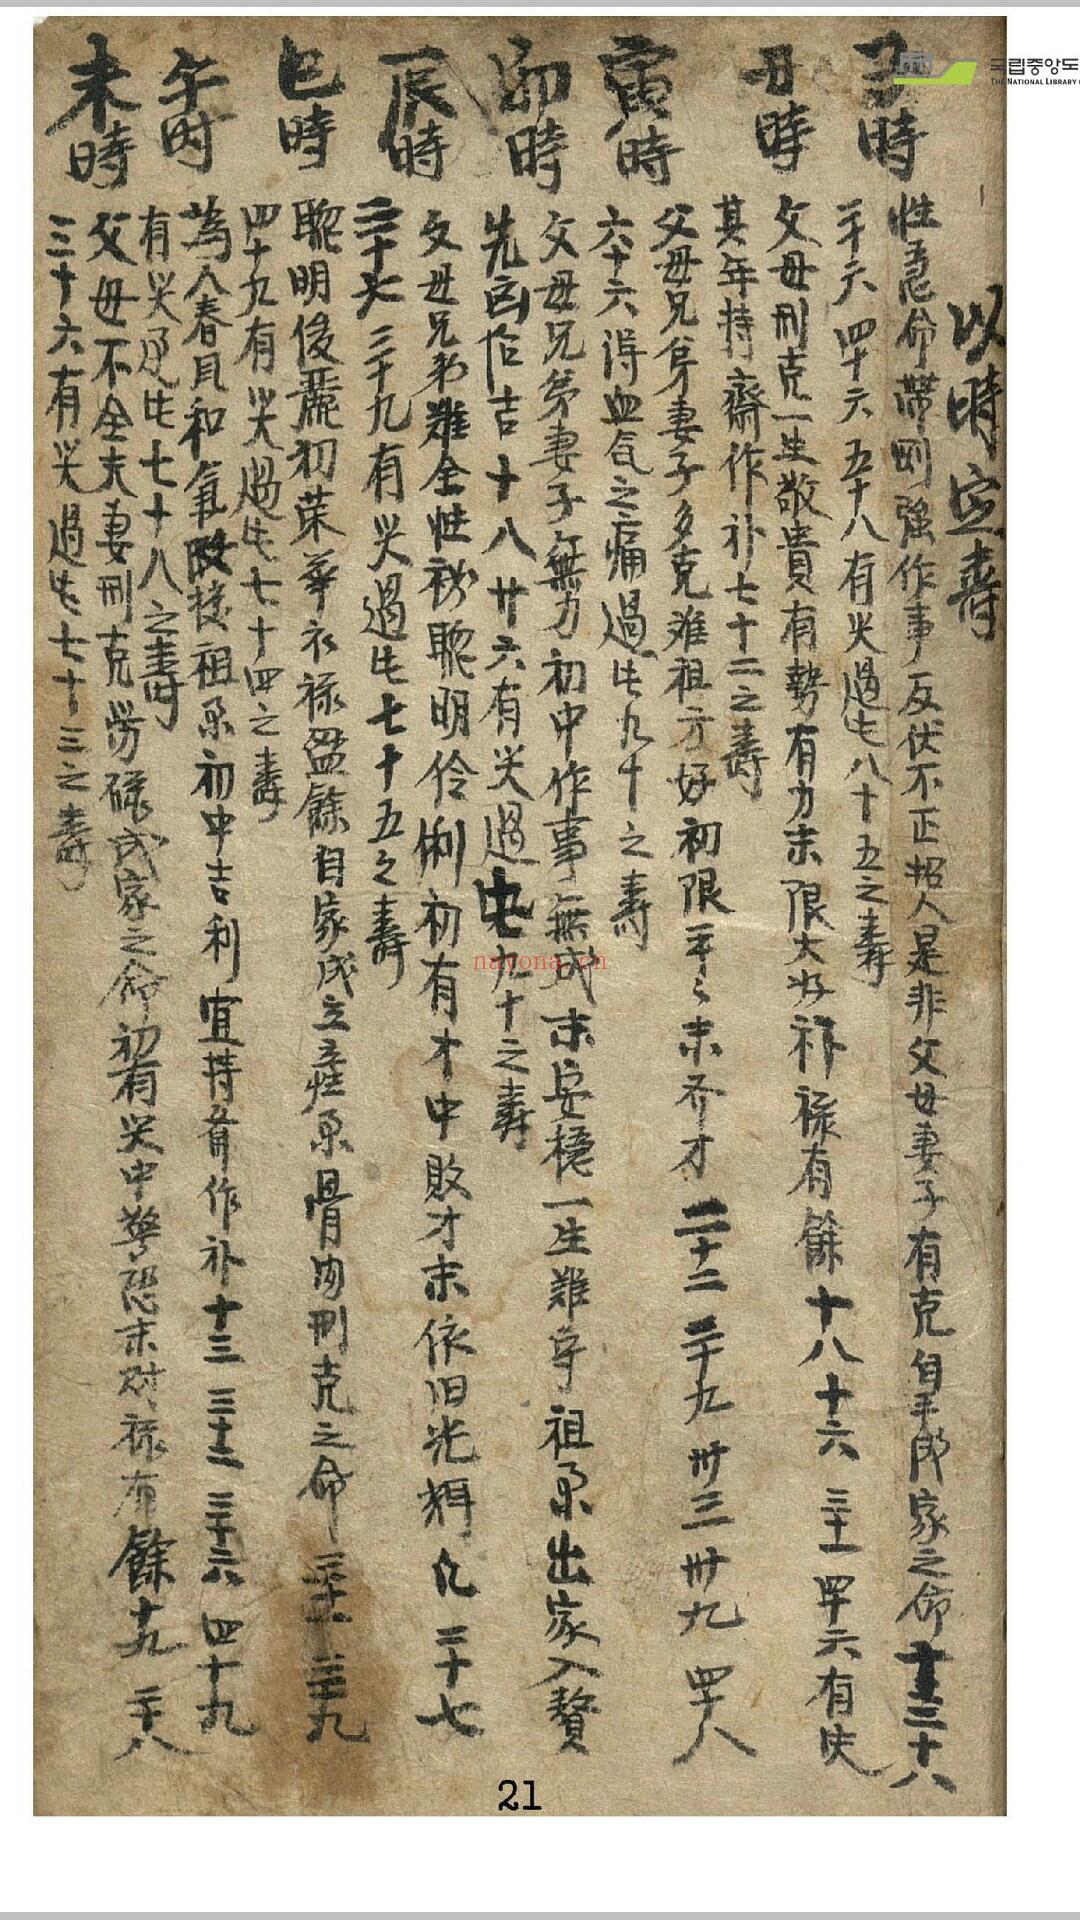 국립중앙도
THE NATIONAL LIBRARY
以時定壽
子時
性急命帶剛強作事反伏不正招人是非父母妻子有克自手成家之命十三 二十八
二十六 四十六 五十八有灾過此八十五之壽
丑時
父母刑克一生敬貴有勢有力末限大好福祿有餘十八 十六 三十一 四十六有灾
其年持齋作补七十二之壽
寅時
父母兄弟妻子多克难祖方好初限平々末齐才 二十二 二十九 卅三 卅九 四十八
六十六得血气之痛過此九十之壽
卯時
父母兄弟妻子無力初中作事無成末安穩一生難守祖業出家入贅
先凶后吉十八廿六有灾過此九十之壽
辰時
父母兄弟難全性 聰明伶俐初有才中敗才末依旧光輝 八 二十七
二十九有灾過此七十五之壽
巳時
聰明俊麗初荣華衣祿盈餘自家成立産業骨肉刑克之命 二十一 三十九
四十九有灾過此七十四之壽
午时
為人春風和氣改接祖業初中吉利宜持齋作补十三 三十二 三十六 四十九
有灾過此七十八之壽
未時
父母不全夫妻刑克勞碌成家之命初有灾中驚恐末財祿有餘十九 二十八
三十六有灾過此七十三之壽
nayona.cn
21